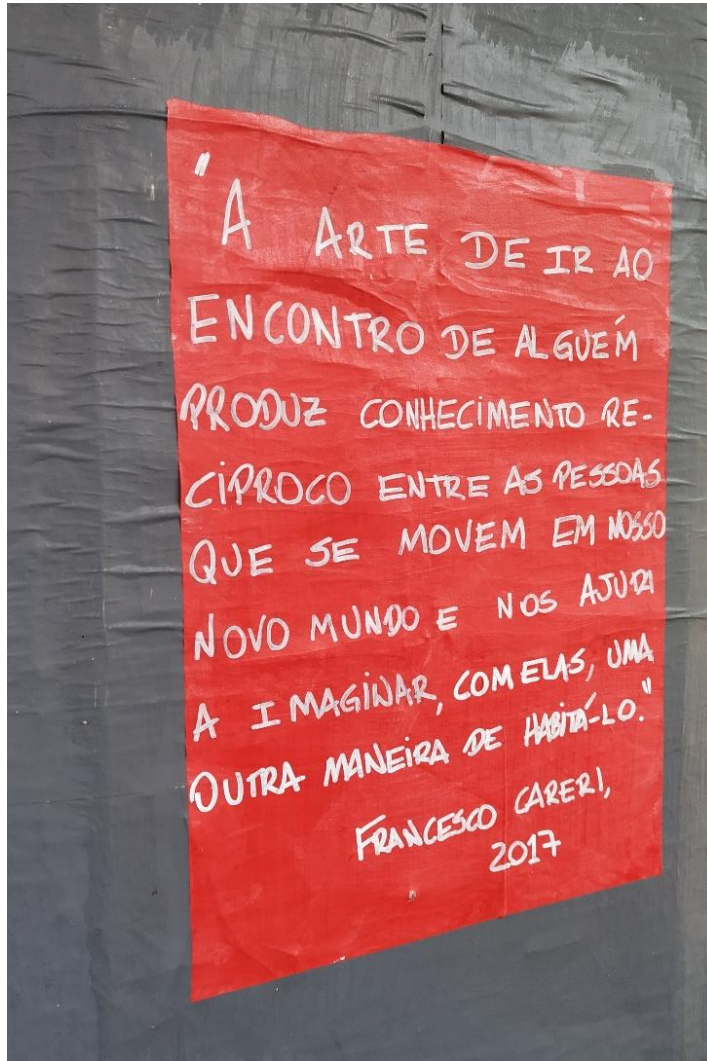 "A ARTE DE IR AO
ENCONTRO DE ALGUÉM
PRODUZ CONHECIMENTO RE-
CÍPROCO ENTRE AS PESSOAS
QUE SE MOVEM EM NOSSO
NOVO MUNDO E NOS AJUDA
A IMAGINAR, COM ELAS, UMA
OUTRA MANEIRA DE HABITÁ-LO."
FRANCESCO CARERI,
2017